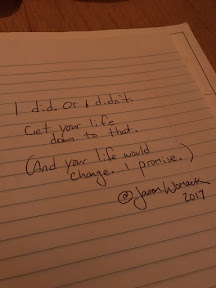 I did. Or I didn't.
Get your life
down to that.
(And your life would
change. I promise.)
@JasonWomack
2017